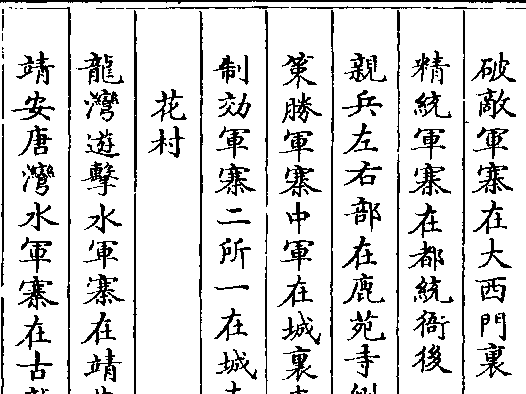 破敵軍寨在大西門裏
精統軍寨在都統衙後
親兵左右部在鹿苑寺側
策勝軍寨中軍在城裏
制効軍寨二所一在城
花村
龍灣遊擊水軍寨在靖
靖安唐灣水軍寨在古龍